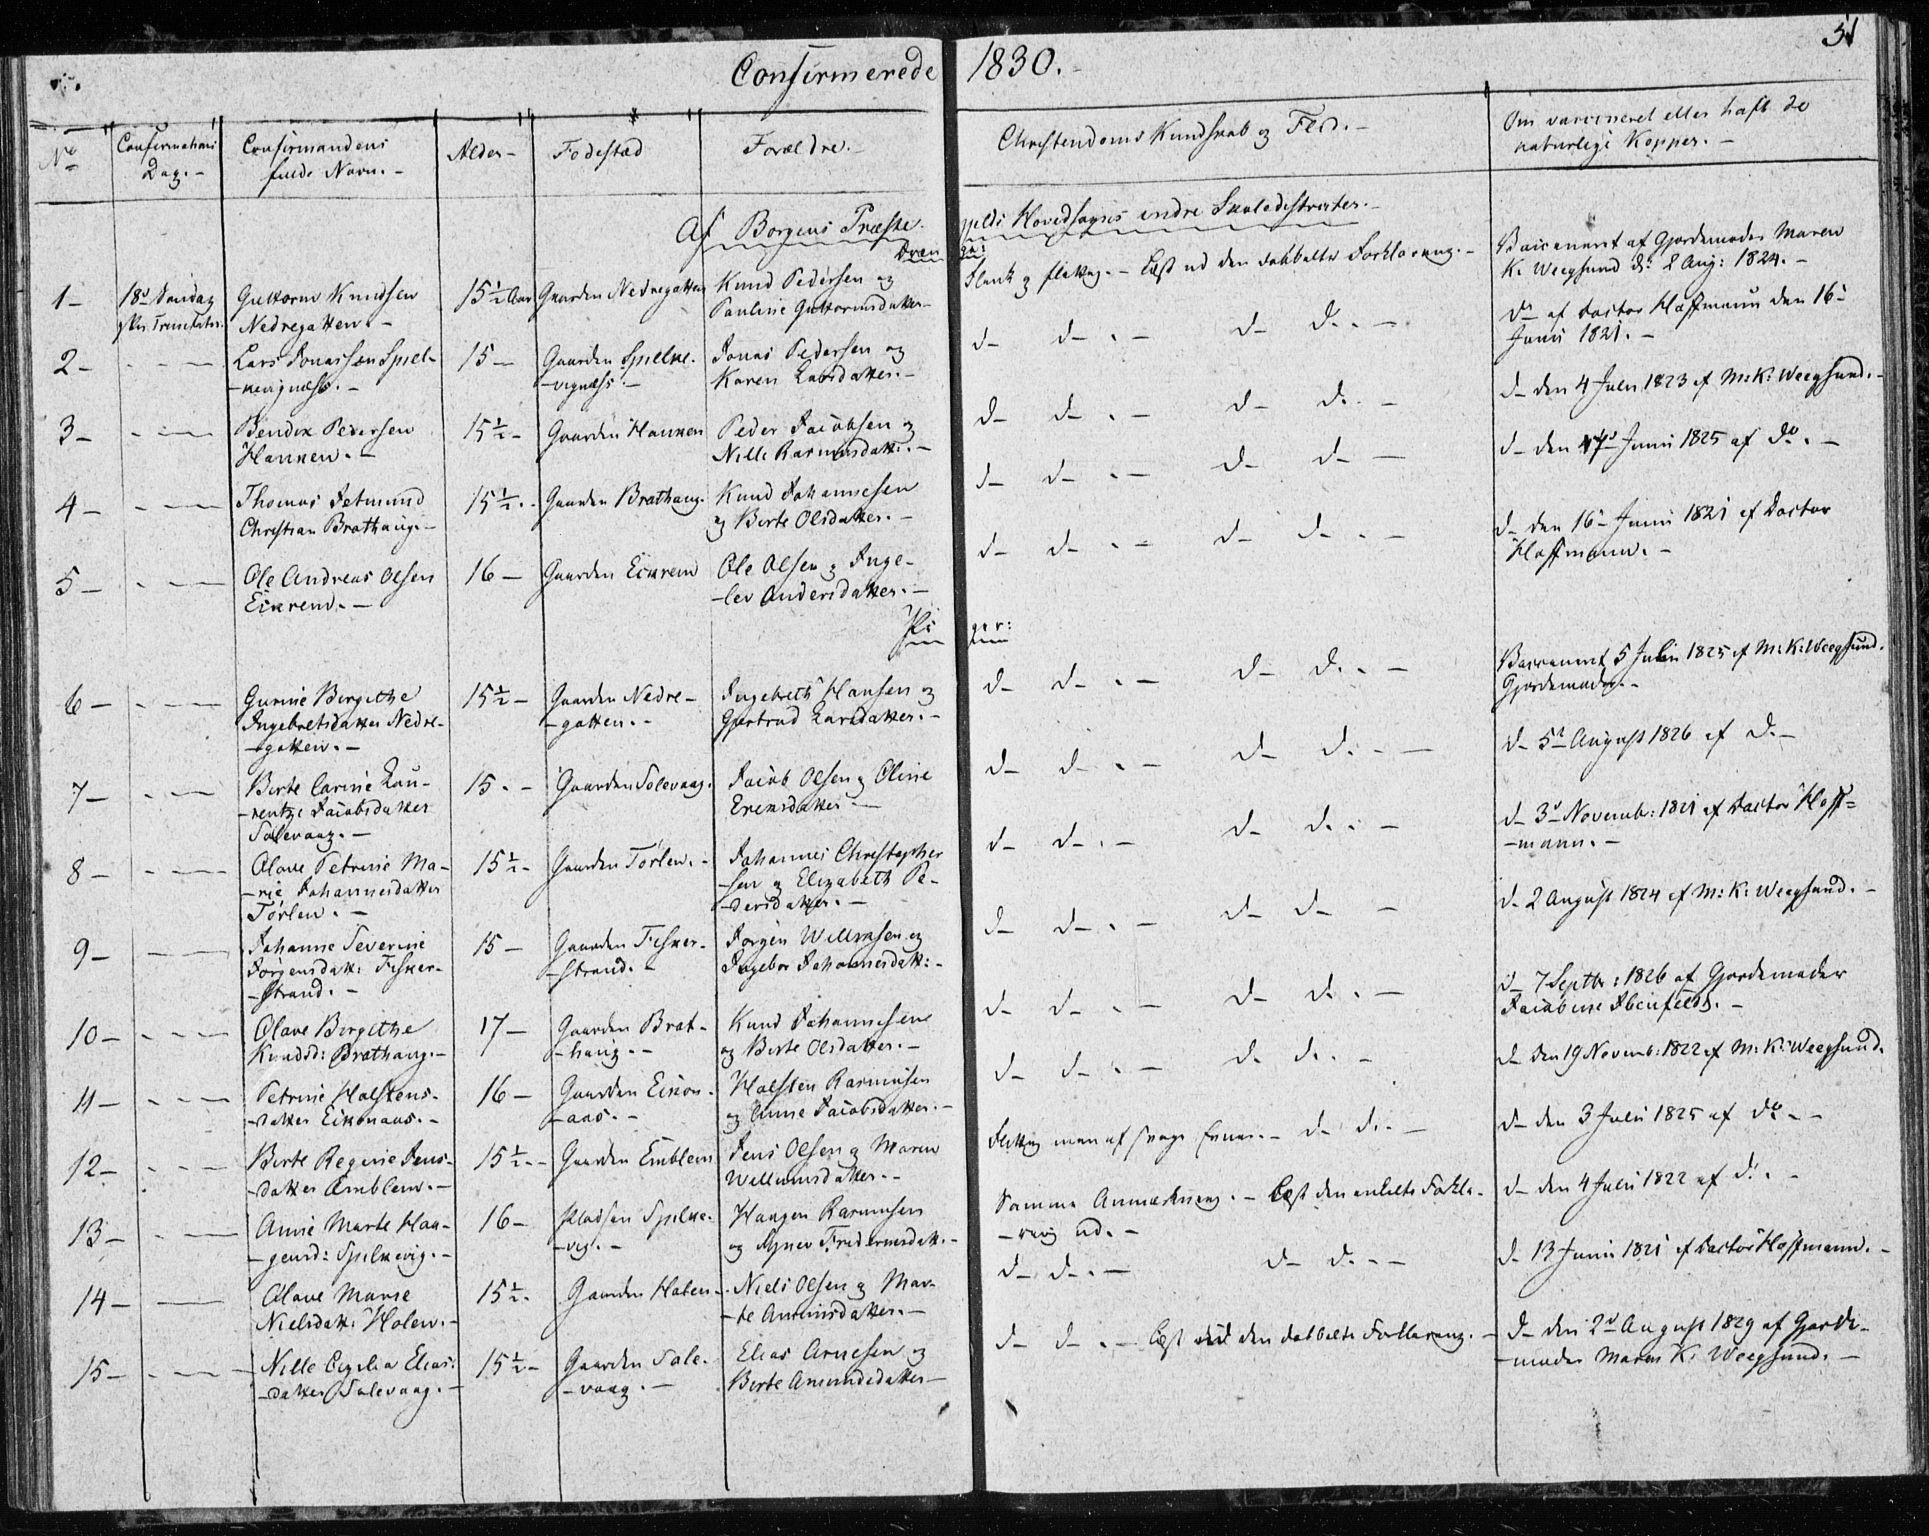 Confirmerede 1830.
51
No
Confirmations
Dag.-
Confirmandens
fulde Navn.-
Alder-
Fødestæd
Forældre.-
Christendoms Kundskab og Flid.-
Om vaccineret eller haft de
naturlige Kopper.-
Af Borgens Præstegjelds Hovedsogns indre Skoledistricter.-
Drenge:
1-
18de Søndag
efter Trinitatis.
Guttorm Knudsen
Nedregatten.-
15½ Aar
Gaarden Nedregatten
Knud Pedersen og
Pauline Guttormsdatter-
Flink og flittig.- Læst ud den dobbelte Forklaring.-
Vaccineret af Gjordemoder Maren
K. Weegsund d: 2 Aug: 1824.-
2-
Lars Jonassen Spiel-
-kevignæss.-
15-
Gaarden Spilke-
-vignæss.-
Jonas Pedersen og
Karen Larsdatter.-
d- d-.- d- d.-
do af Doctor Hoffmann den 16-
Juni 1821.-
3-
Bendix Pedersen
Hanken.-
15½-
Gaarden Hanken
Peder Jacobsen og
Nille Rasmusdatt:.-
d- d-.- d- d.-
d- den 4 Julii 1823 af M: K: Weegsund.-
4-
Thomas Jetmund
Christian Brathaug.-
15½.-
Gaarden Brathaug.
Knud Johannesen
og Berte Olsdatter.-
d- d-.- d- d-
d- den 17- Junii 1825 af do.-
5-
Ole Andreas Olsen
Eikrem.-
16-
Gaarden Eikrem
Ole Olsen og Inge-
-lev Andersdatter.-
d- d-.- d- d-.-
d- den 16- Junii 1821 af Doctor
Hoffmann.-
Piger:
6-
Gurine Birgithe
Ingebretsdatter Nedre-
-gatten.-
15½-
Gaarden Nedre-
-gatten.-
Ingebreth Hansen og
Gjertrud Larsdatter.-
d- d-.- d- d.-
Vaccineret 5 Julii 1825 af M: K: Weegsund.
Gjordemoder.-
7-
Berte Carine Lau-
-rentze Jacobsdatter
Solevaag.-
15.-
Gaarden Solevaag.
Jacob Olsen og Oline
Ericksdatter-
d- d-.- d- d.-
d- 5te August 1826 af d.-
8-
Olave Petrine Ma-
-rie Johannesdatter
Tørlen.-
15½-
Gaarden Tørlen.-
Johannes Christopher
-sen og Elizabeth Pe-
-dersdatter.-
d- d-.- d- d.-
d- 3de Novemb: 1821 af Doctor Hoff-
-mann.-
9-
Johanne Severine
Jørgensdatt: Fisker-
-strand.-
15-
Gaarden Fisker-
-strand.-
Jørgen Willumsen og
Ingebor Johannesdatt:-
d- d-.- d- d-
d- 2 August 1824 af M: K: Weegsund.-
10-
Olave Birgithe
Knudsd: Brathaug.-
17-
Gaarden Brat-
-haug.-
Knud Johannesen
og Berte Olsdatter.-
d- d-.- d- d.-
d- 7 Septbr: 1826 af Gjordemoder
Jacobine Ibenfeldt.-
11-
Petrine Halstens-
-datter Eikenaas.-
16-
Gaarden Eiken-
-aas.-
Halsten Rasmusen
og Anne Jacobsdatter.-
d- d-.- d- d.-
d- den 19 Novemb: 1822 af M: K: Weegsund.
12-
Berte Regine Jens-
-datter Emblem.-
15½.-
Gaarden Emblem
Jens Olsen og Maren
Willumsdatter.-
Flittig men af svage Evner.- d- d.-
d- den 3 Julii 1825 af do.-
13-
Anne Marte Haa-
-gensd: Spilkevig.-
16-
Pladsen Spilke-
-vig.-
Haagen Rasmusen
og Synev Frederiksdatt.-
Samme Anmærkning.- Læst den enkelte Forkla-
-ring ud.-
d- den 4 Julii 1822 af d.-
14-
Olave Marie
Nielsdatt: Holen.-
15½.
Gaarden Holen-
Niels Olsen og Mar-
-te Amundsdatter.-
d- d-.- d- d.-
d- 13 Junii 1821 af Doctor Hoffmann.-
15-
Nille Cecilia Elias-
-datter Solevaag.-
15½-
Gaarden Sole-
-vaag.-
Elias Arnesen og
Berte Amundsdatter-
d- d-.- Læst ud den dobbelte Forklaring.-
d- den 2de August 1829 af Gjorde-
-moder Maren K: Weegsund.-